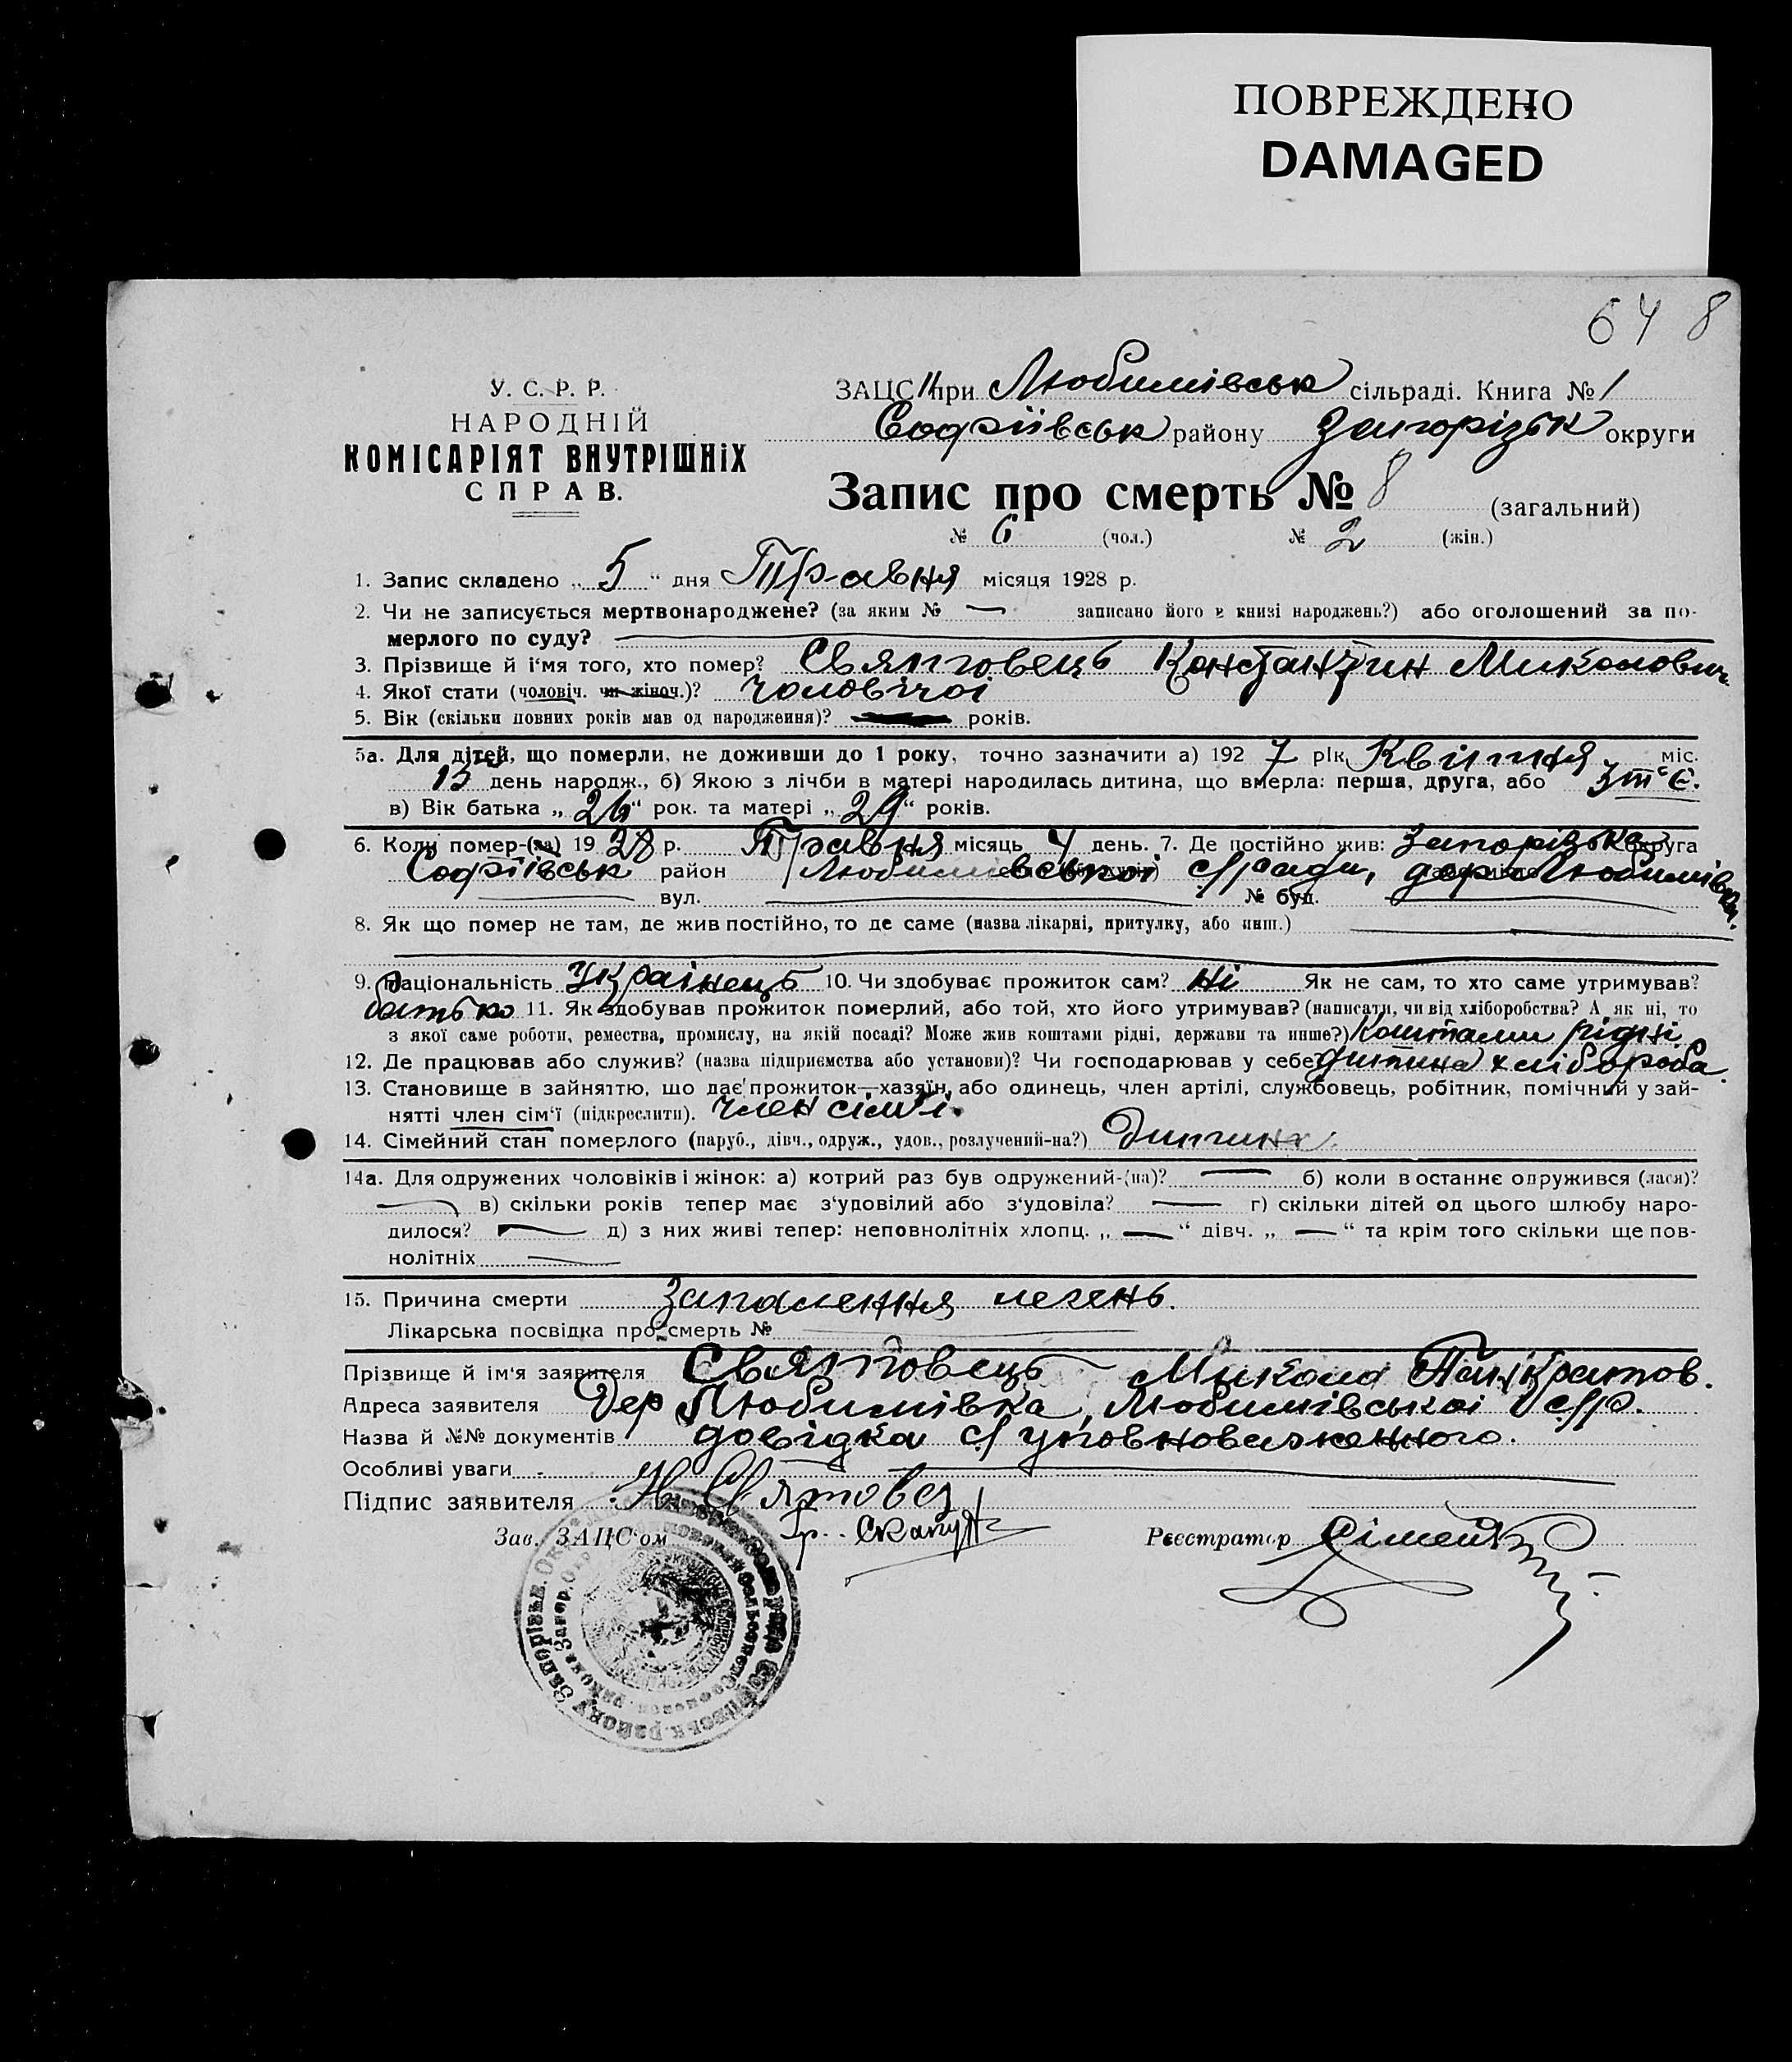 ПОВРЕЖДЕНО
DAMAGED
64 8
У. С. Р. Р.
НАРОДНІЙ
КОМІСАРІЯТ ВНУТРІШНІХ
СПРАВ.
ЗАЦС при Любимівськ сільраді. Книга № 1
Софіївськ району Запорізьк округи
Запис про смерть № 8 (загальний)
№ 6 (чол.) № 2 (жін.)
1. Запис складено „ 5 “ дня Травня місяця 1928 р.
2. Чи не записується мертвонароджене? (за яким № — записано його в книзі народжень?) або оголошений за по-
мерлого по суду?
3. Прізвище й і‘мя того, хто помер? Святовець Константин Миколович
4. Якої стати (чоловіч. чи жіноч.)? чоловічої
5. Вік (скільки повних років мав од народження)? років.
5а. Для дітей, що померли, не доживши до 1 року, точно зазначити а) 192 7 рік Квітня міс.
15 день народж., б) Якою з лічби в матері народилась дитина, що вмерла: перша, друга, або 3тЄ.
в) Вік батька „ 26 “ рок. та матері „ 29 “ років.
6. Коли помер-(ла) 19 28 р. Травня місяць 4 день. 7. Де постійно жив: Запорізька округа
Софіївськ район Любимівської с/ради, дер Любимівки.
вул. № буд.
8. Як що помер не там, де жив постійно, то де саме (назва лікарні, притулку, або инш.)
9. Національність Українець 10. Чи здобуває прожиток сам? ні Як не сам, то хто саме утримував?
батько 11. Як здобував прожиток померлий, або той, хто його утримував? (написати, чи від хліборобства? А як ні, то
з якої саме роботи, ремества, промислу, на якій посаді? Може жив коштами рідні, держави та инше?) Коштами рідні
12. Де працював або служив? (назва підприємства або установи)? Чи господарював у себе дитина хлібороба.
13. Становище в зайняттю, що дає прожиток—хазяїн, або одинець, член артілі, службовець, робітник, помічний у зай-
нятті член сім‘ї (підкреслити). член сім'ї.
14. Сімейний стан померлого (паруб., дівч., одруж., удов., розлучений-на?) Дитина
14а. Для одружених чоловіків і жінок: а) котрий раз був одружений-(на)? — б) коли в останнє одружився (лася)?
— в) скільки років тепер має з‘удовілий або з‘удовіла? — г) скільки дітей од цього шлюбу наро-
дилося? — д) з них живі тепер: неповнолітніх хлопц. „ — “ дівч. „ — “ та крім того скільки ще пов-
нолітніх —
15. Причина смерти Запалення легень.
Лікарська посвідка про смерть №
Прізвище й ім‘я заявителя Святовець Микола Панкратов.
Адреса заявителя Дер Любимівка, Любимівської с/р.
Назва й №№ документів довідка с/ уповноваженного.
Особливі уваги
Підпис заявителя Н Святовец
Зав. ЗАЦС‘ом Реєстратор